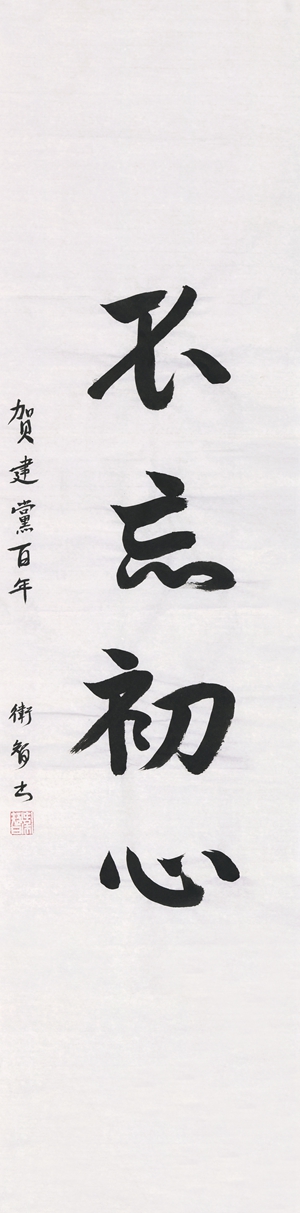 不忘初心
贺建黨百年
衛智书